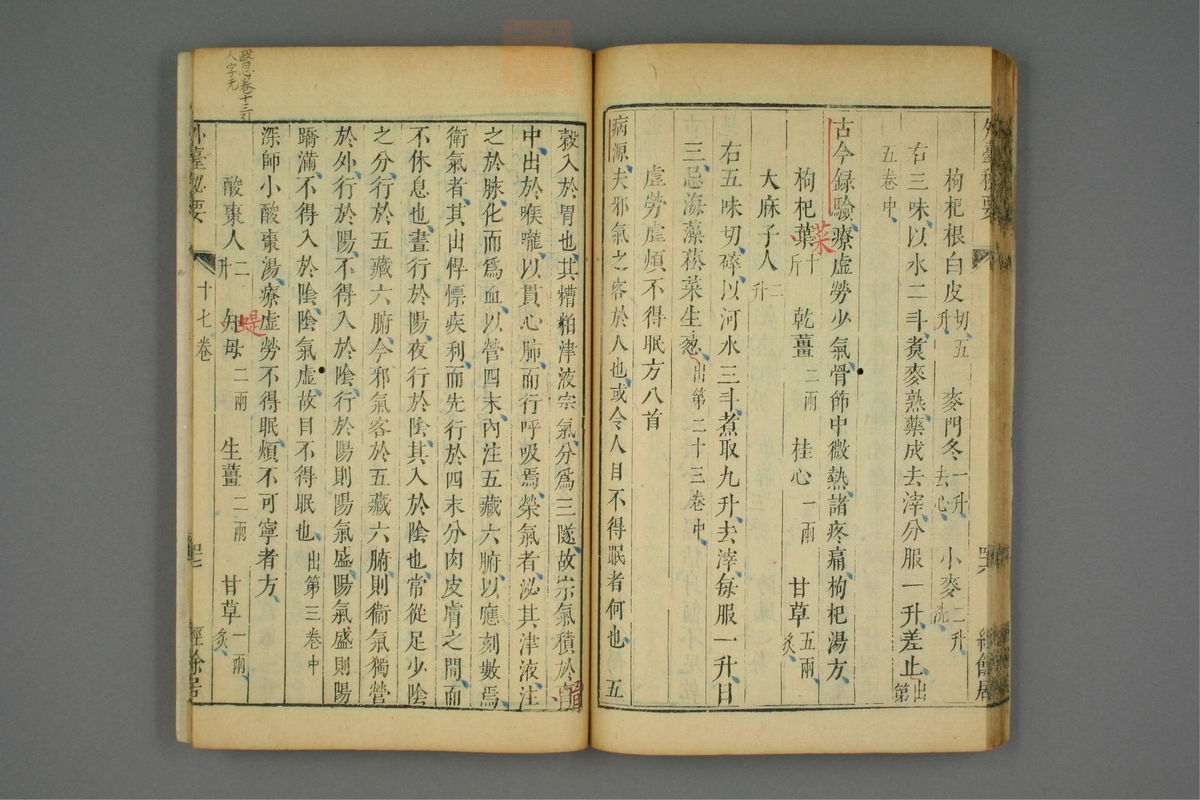 枸杞根白皮切五升 麥門冬一升去心 小麥二升洗
右三味以水二斗煮麥熟藥成去滓分服一升差止出第
五卷中
古今録驗療虛勞少氣骨節中微熱諸疼痛枸杞湯方
枸杞葉十斤 乾薑二兩 桂心一兩 甘草五兩炙
菜
大麻子人二升
右五味切碎以河水三斗煮取九升去滓每服一升日
三忌海藻菘菜生葱出第二十三卷中
虛勞虛煩不得眠方八首
病源夫邪氣之客於人也或令人目不得眠者何也五
穀入於胃也其糟粕津液宗氣分爲三隧故宗氣積於胷
中出於喉嚨以貫心肺而行呼吸焉榮氣者泌其津液注
之於脉化而爲血以營四末內注五藏六腑以應刻數焉
衛氣者其出悍慓疾利而先行於四末分肉皮膚之閒而
不休息也晝行於陽夜行於陰其入於陰也常從足少陰
之分行於五藏六腑今邪氣客於五藏六腑則衛氣獨營
於外行於陽不得入於陰行於陽則陽氣盛陽氣盛則陽
蹻滿不得入於陰陰氣虛故目不得眠也出第三卷中
深師小酸棗湯療虛勞不得眠煩不可寧者方
酸棗人二升 知母二兩 生薑二兩 甘草一兩炙
外臺秘要 十七卷 經餘居
醫心卷十三
人字无